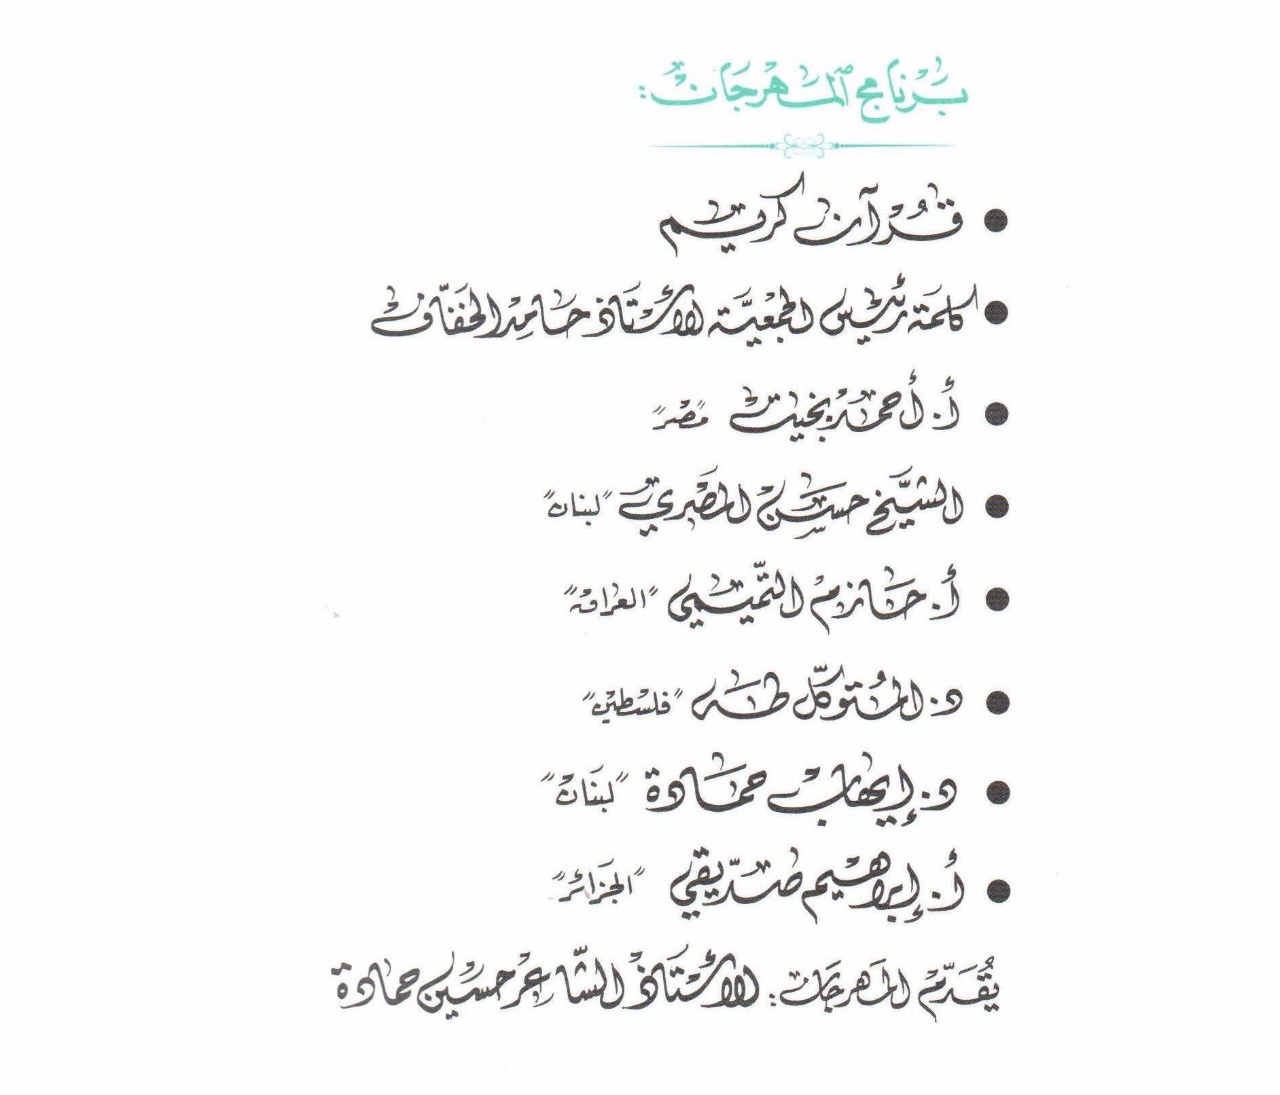 برنامج المهرجان:
● قرآن كريم
● كلمة رئيس الجمعية الأستاذ حامد الخفّاف
● أ. أحمد بخيت "مصر"
● الشيخ حسن المصري "لبنان"
● أ. حازم التميمي "العراق"
● د. المتوكّل طه "فلسطين"
● د. إيهاب حمادة "لبنان"
● أ. إبراهيم صدّيقي "الجزائر"
يُقدّم المهرجان: الأستاذ الشّاعر حسين حمادة